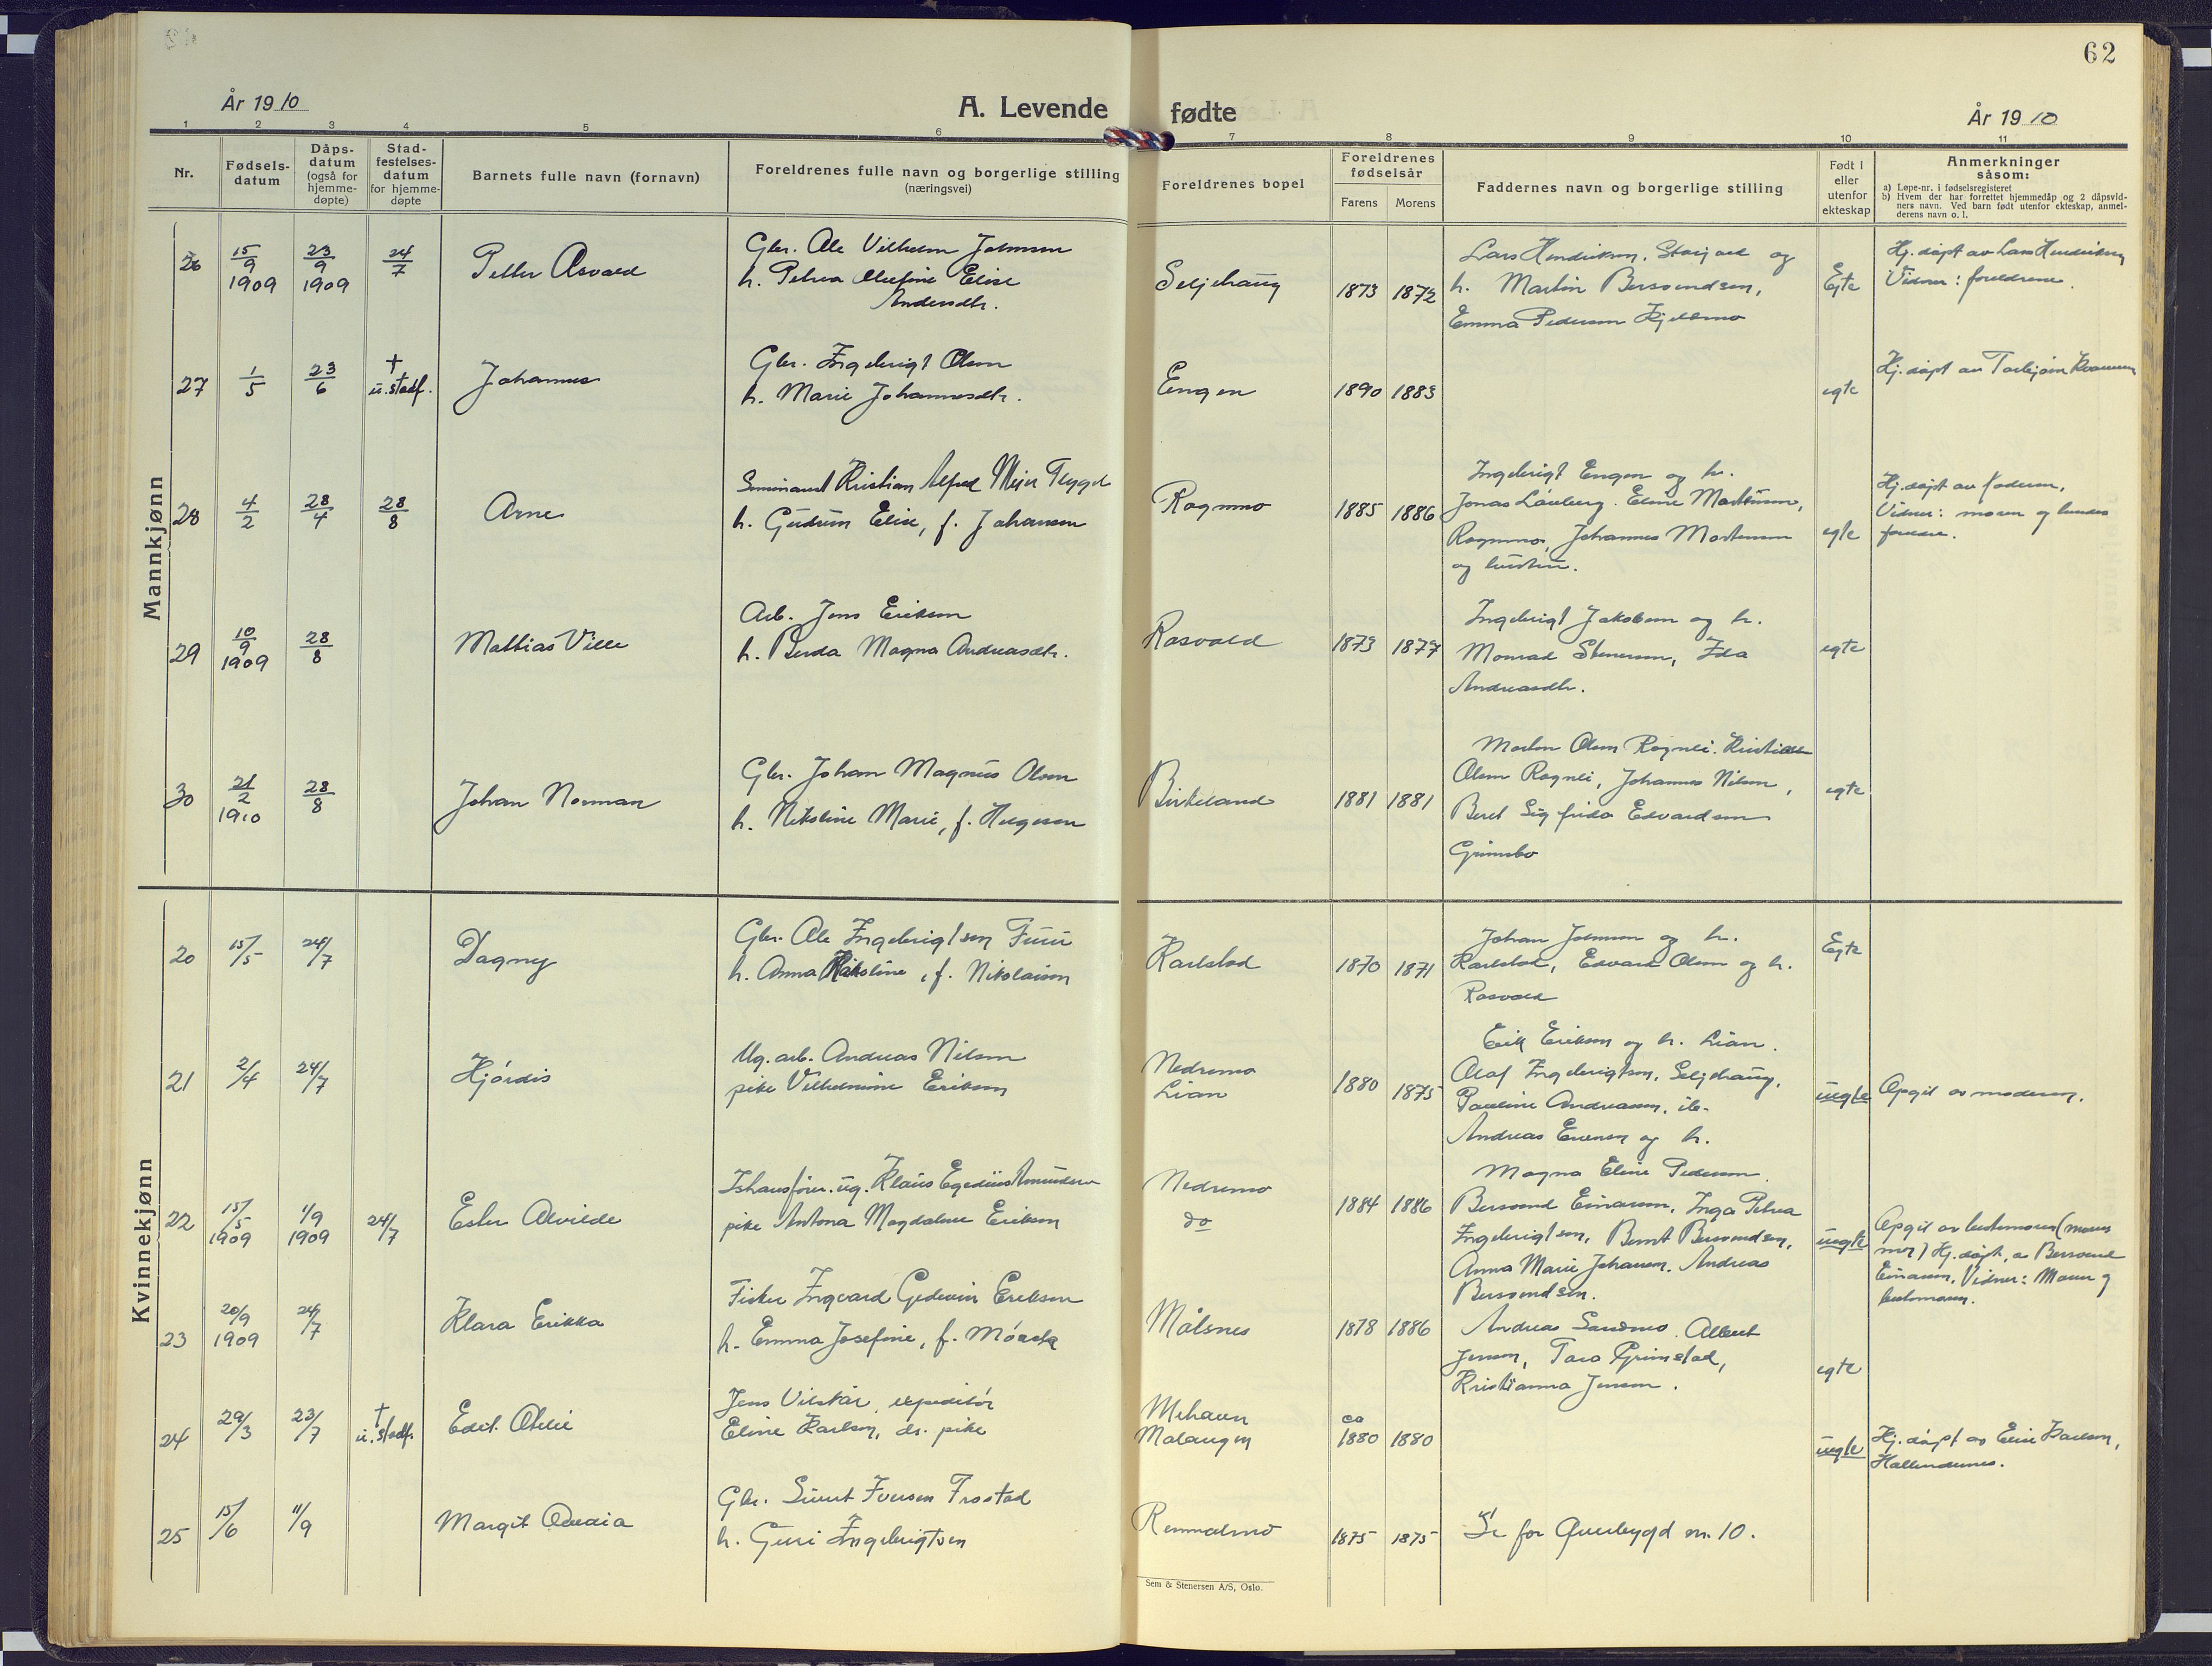 62
År 1910
A. Levende fødte
År 1910
1 2 3 4 5 6 7 8 9 10 11
Nr.
Fødsels-
datum
Dåps-
datum
(også for
hjemme-
døpte)
Stad-
festelses-
datum
for hjemme-
døpte
Barnets fulle navn (fornavn)
Foreldrenes fulle navn og borgerlige stilling
(næringsvei)
Foreldrenes bopel
Foreldrenes
fødselsår
Farens Morens
Faddernes navn og borgerlige stilling
Født i
eller
utenfor
ekteskap
Anmerkninger
såsom:
a) Løpe-nr. i fødselsregisteret
b) Hvem der har forrettet hjemmedåp og 2 dåpsvid-
ners navn. Ved barn født utenfor ekteskap, anmel-
derens navn o. l.
Mannkjønn
26 15/9 1909 23/9 1909 24/7
Petter Asvald
Gbr. Ole Vilhelm Johnsen
h. Petrea Olufine Elise
Andersdtr.
Seljehaug
1873 1872
Lars Hendriksen, og
h. Martin Bersvendsen,
Emma Pedersen Kjellmo
Egte
Hj. døpt av Lars Hendriksen
Vidner: foreldrene.
27 1/5 23/6 † u. stadf.
Johannes
Gbr. Ingebrigt Olsen
h. Marie Johannesdtr.
Engen
1890 1883
egte
Hj. døpt av Torbjørn
28 4/2 28/4 28/8
Arne
Seminarist Kristian Alfred Meier Flygel
h. Gudrun Elise, f. Johansen
Rognmo
1885 1886
Ingebrigt Engen og h.
Jonas Løvberg. Eline Martinsen,
Rognmo, Johannes Mortensen
og hustru.
egte
Hj. døpt av faderen,
Vidner: moren og hendes
29 10/9 1909 28/8
Mathias Ville
Arb. Jens Eriksen
h. Berda Magna Andreasdtr.
Rosvold
1873 1877
Ingebrigt Jakobsen og h.
Monrad Stenersen, Ida
Andreasdtr.
egte
30 21/2 1910 28/8
Johan Norman
Gbr. Johan Magnus Olsen
h. Nikoline Marie, f. Helgesen
Birkeland
1881 1881
Morten Olsen Rognli. Kristian
Olsen Rognli, Johannes Nilsen,
Beret Sigfrida Edvardsen
Grimsbo
egte
Kvinnekjønn
20 15/5 24/7
Dagny
Gbr. Ole Ingebrigtsen Furu
h. Anna Nikoline, f. Nikolaisen
Karlstad
1870 1871
Johan Johnsen og h.
Karlstad, Edvard Olsen og h.
Rosvold
Egte
21 2/4 24/7
Hjørdis
Ug. arb. Andreas Nilsen
pike Vilhelmine Eriksen
Nedremo
Lian
1880 1875
Erik Eriksen og h. Lian.
Olaf Ingebrigtsen, Seljehaug,
Pauline Andreasen, ib.
Andreas Evensen og h.
uegte
Opgit av moderen.
22 15/5 1909 1/9 1909 24/7
Ester Alvilde
Ishavsfører. ug. Klaus Egedius Amundsen
pike Antona Magdalene Eriksen
Nedremo
do
1884 1886
Magna Eline Pedersen.
Bersvend Einarsen, Inga Petrea
Ingebrigtsen, Bernt Bersvendsen,
Anna Marie Johansen. Andreas
Bersvendsen.
uegte
Opgit av bestemoren (morens
mor) Hj. døpt. av Bersvend
Einarsen, Vidner: Moren og
bestemoren.
23 20/9 1909 24/7
Klara Erikka
Fisker Ingvard Gedevin Eriksen
h. Emma Josefine, f. Mørck
Målsnes
1878 1886
Andreas Sandmo. Albert
Jensen, Tara Grimstad,
Kristianna Jensen.
egte
24 29/3 23/7 † u. stadf.
Edit. Otelie
Jens Vilskår, ekspeditør
Eline Karlsen, ds. pike
Mehavn
Malangen
ca 1880 1880
uegte
Hj. døpt av Elise Karlsen,
25 15/6 11/9
Margit
Gbr. Sivert Iversen Frostad
h. Guri Ingebrigtsen
1875 1875
Se for Øverbygd nr. 10.
Sem & Stenersen A/S, Oslo.